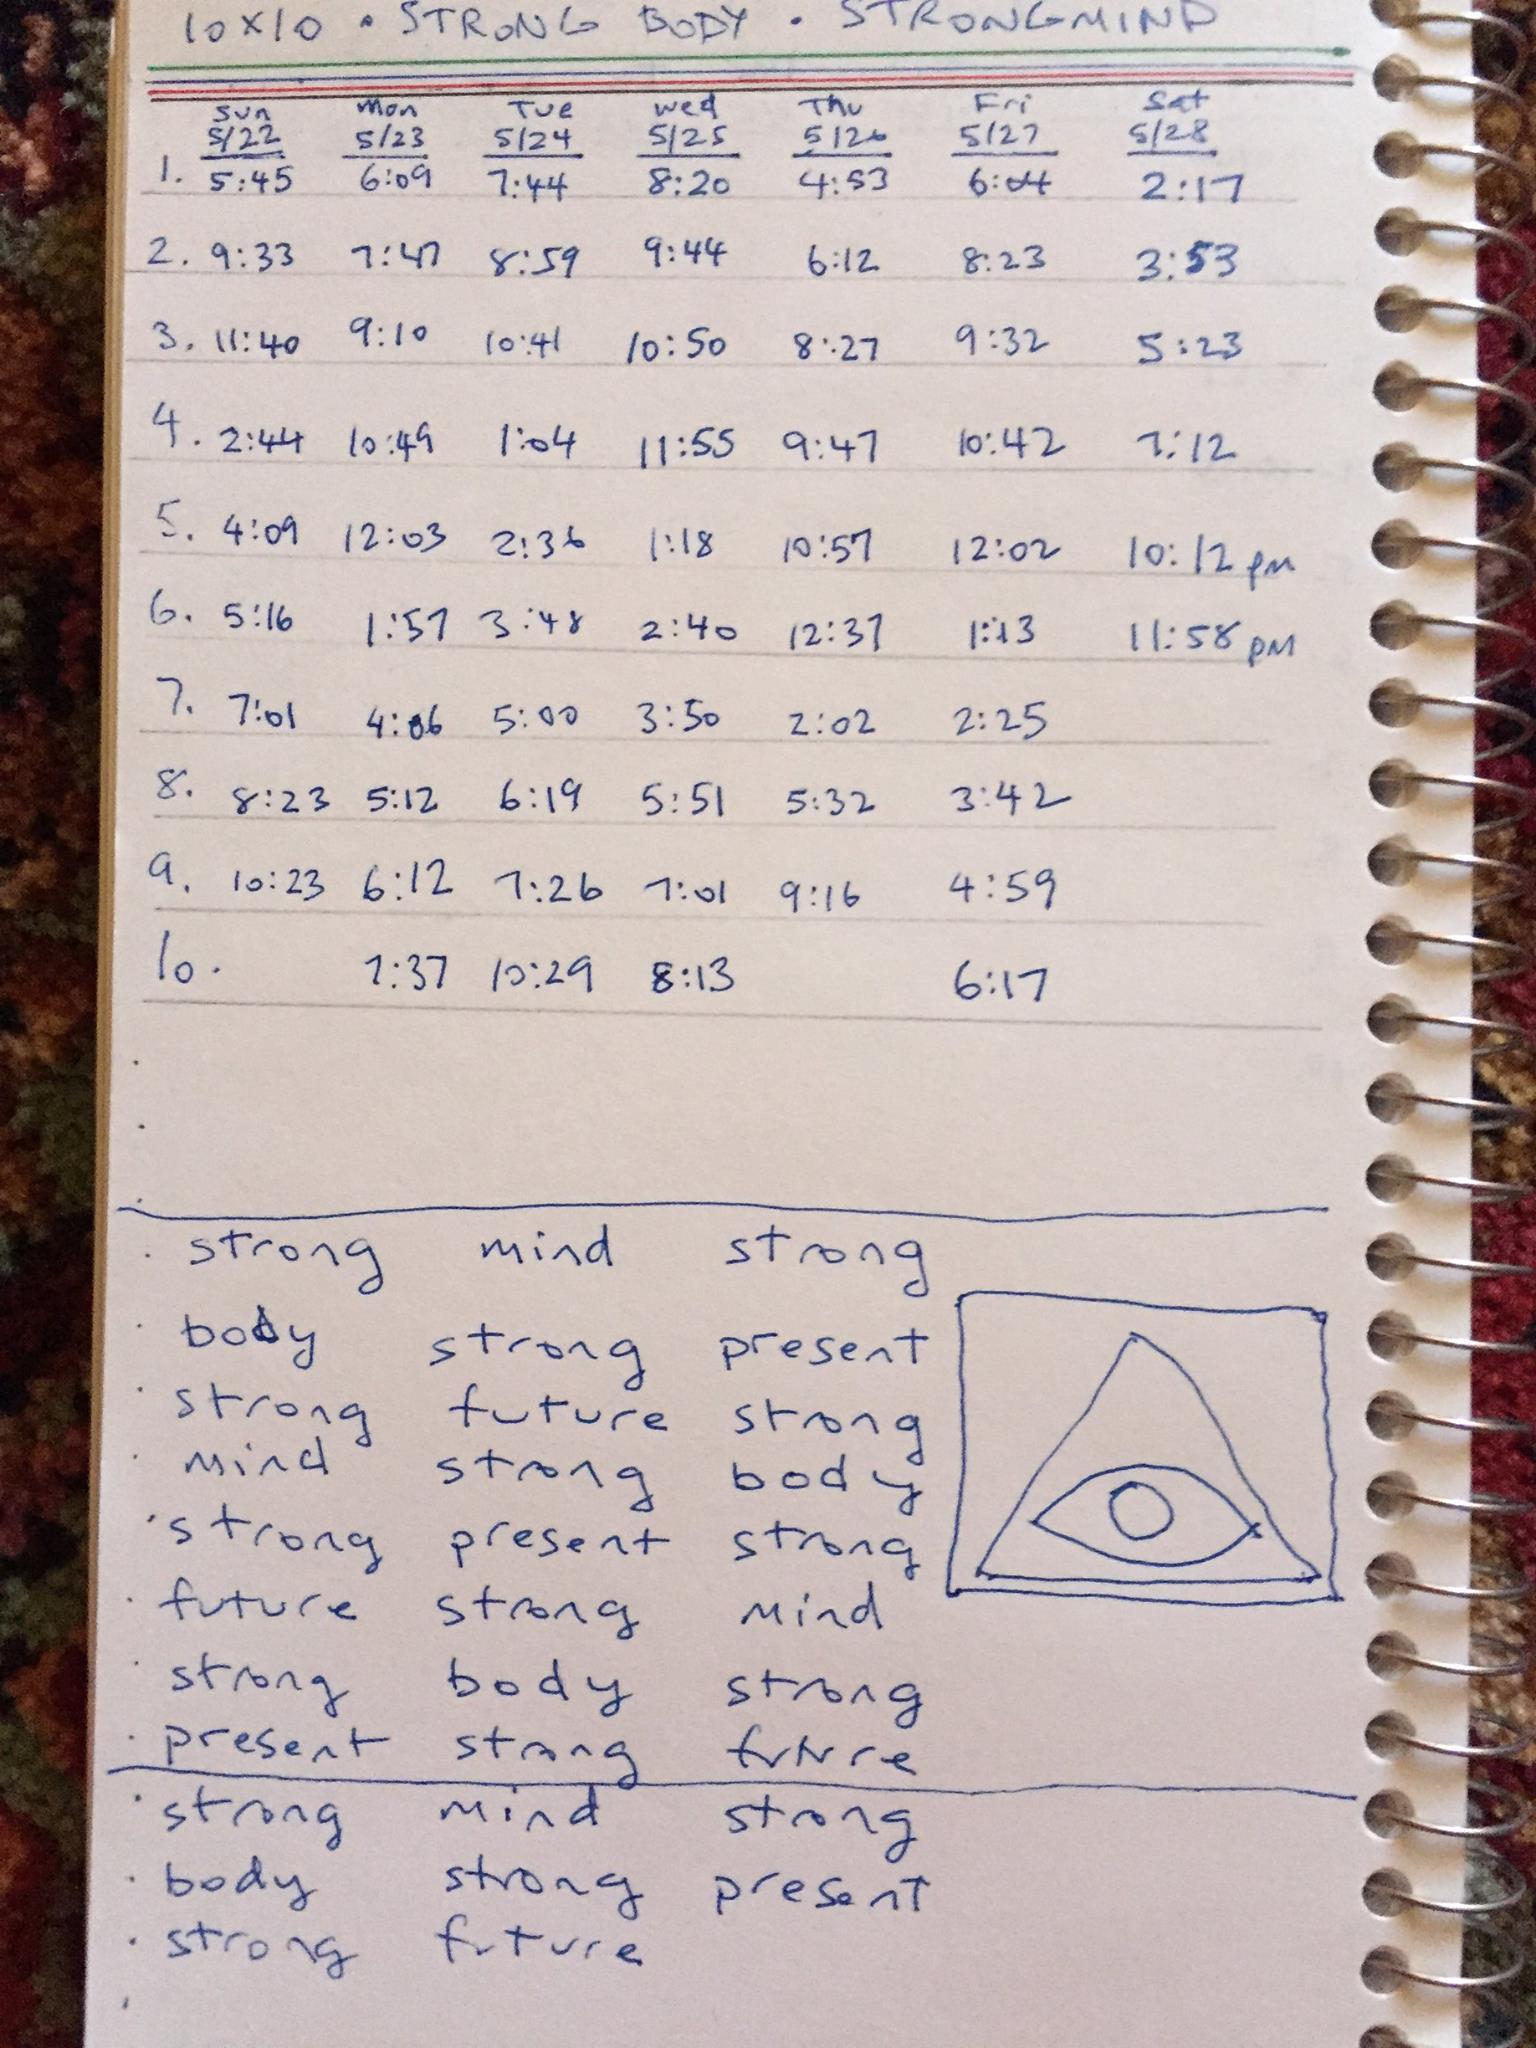 10x10 • STRONG BODY • STRONGMIND
Sun Mon Tue Wed Thu Fri Sat
5/22 5/23 5/24 5/25 5/26 5/27 5/28
1. 5:45 6:09 7:44 8:20 4:53 6:04 2:17
2. 9:33 7:47 8:59 9:44 6:12 8:23 3:53
3. 11:40 9:10 10:41 10:50 8:27 9:32 5:23
4. 2:44 10:49 1:04 11:55 9:47 10:42 7:12
5. 4:09 12:03 2:36 1:18 10:57 12:02 10:12 pm
6. 5:16 1:57 3:48 2:40 12:37 1:13 11:58 pm
7. 7:01 4:06 5:00 3:50 2:02 2:25
8. 8:23 5:12 6:19 5:51 5:32 3:42
9. 10:23 6:12 7:26 7:01 9:16 4:59
10. 7:37 10:29 8:13 6:17
strong mind strong
body strong present
strong future strong
mind strong body
strong present strong
future strong mind
strong body strong
present strong future
strong mind strong
body strong present
strong future